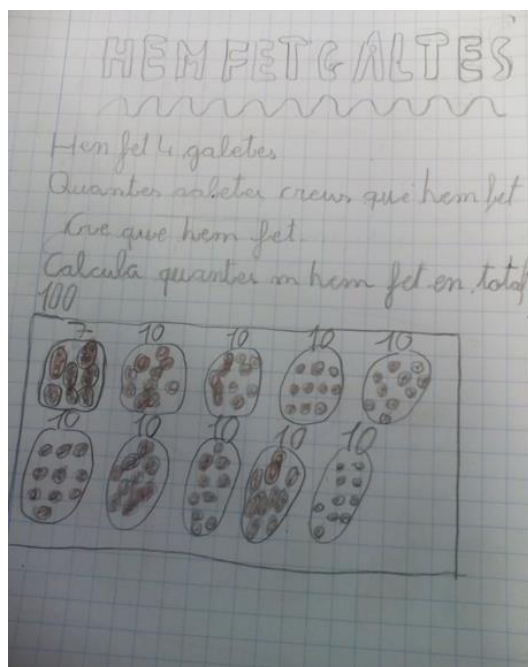 HEM FET GALTES
Hem fet 4 galetes
Quantes galetes creus que hem fet
Cre que hem fet
Calcula quantes m hem fet en total
100
7 10 10 10 10
10 10 10 10 10